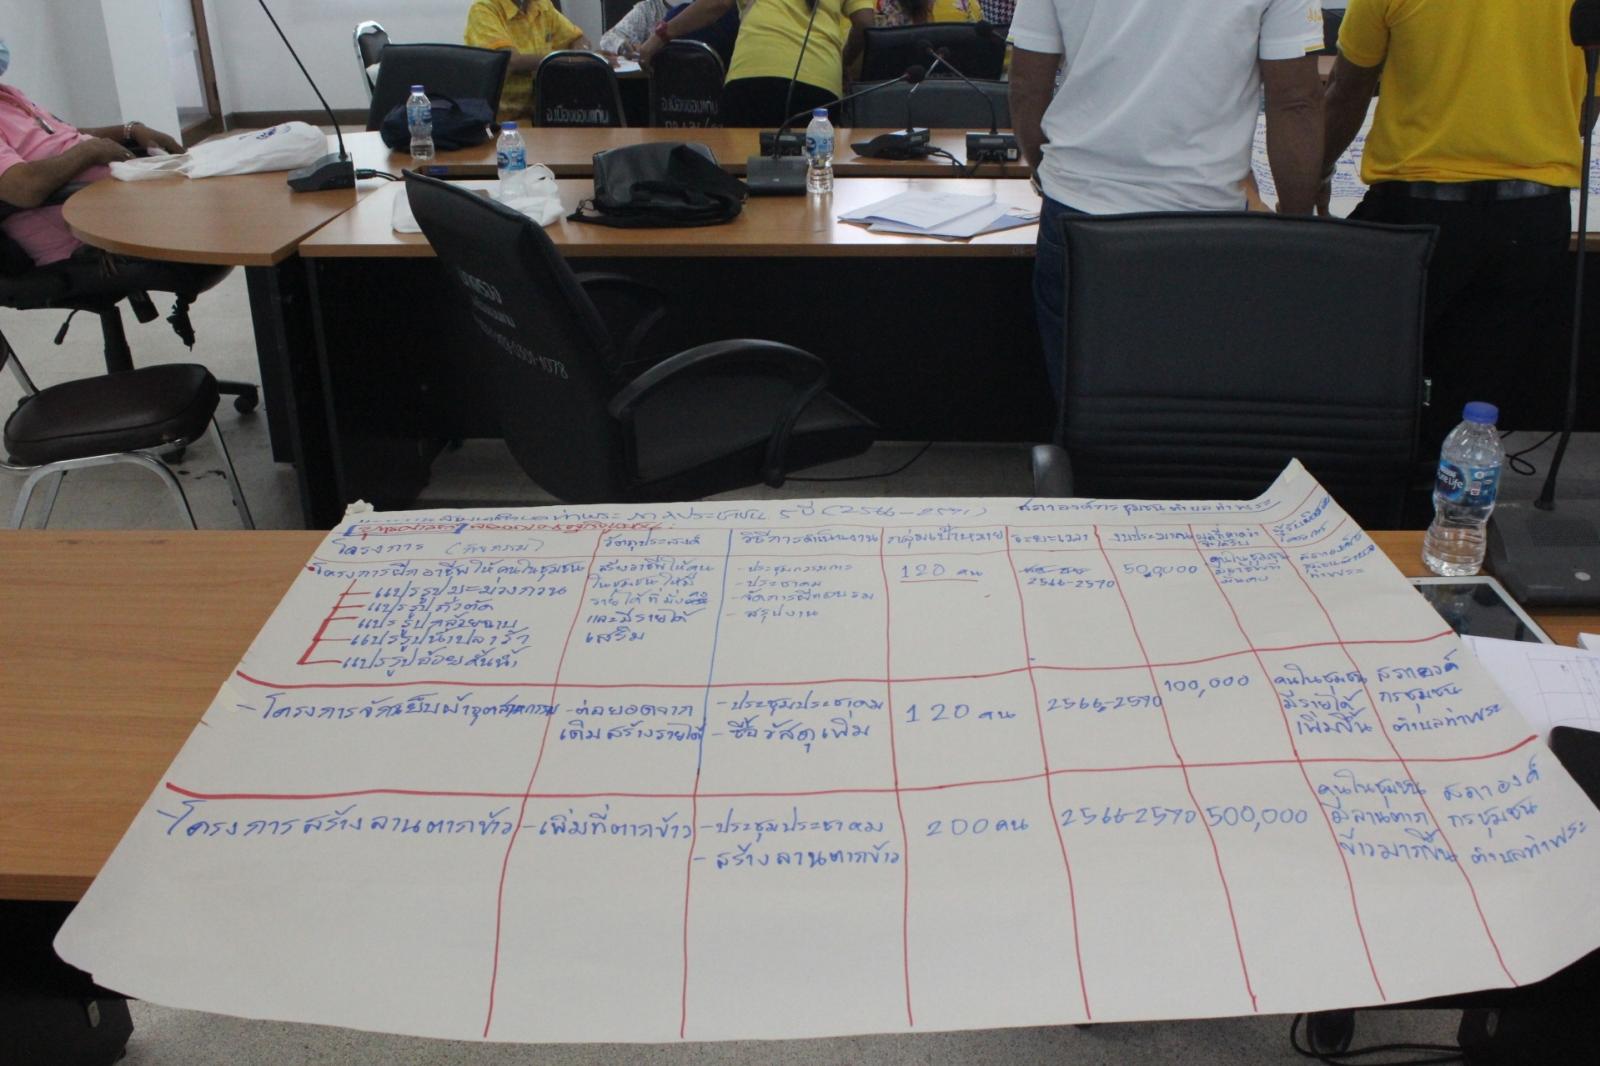 ท่าพระ ภาคประชาชน 5 ปี (2566-2571)
สภาองค์การชุมชนตำบลท่าพระ
ยุทธศาสตร์
โครงการ (กิจกรรม)
วัตถุประสงค์
วิธีการดำเนินงาน
กลุ่มเป้าหมาย
ระยะเวลา
งบประมาณ
โครงการฝึกอาชีพให้คนในชุมชน
แปรรูปมะม่วงกวน
แปรรูปถั่วตัด
แปรรูปกล้วยฉาบ
แปรรูปน้ำปลาร้า
แปรรูปอ้อยคั้นน้ำ
สร้างอาชีพให้คน
ในชุมชนให้มี
รายได้ที่มั่งคง
และมีรายได้
เสริม
- ประชุมกรรมการ
- ประชาคม
- จัดการฝึกอบรม
- สรุปงาน
120 คน
2566-2570
50,000
คนในชุมชน
มั่นคง
ท่าพระ
- โครงการจักรเย็บผ้าอุตสาหกรรม
- ต่อยอดจาก
เดิมสร้างรายได้
- ประชุมประชาคม
- ซื้อวัสดุเพิ่ม
120 คน
2566-2570
100,000
คนในชุมชน
มีรายได้
เพิ่มขึ้น
สภาองค์
กรชุมชน
ตำบลท่าพระ
- โครงการสร้างลานตากข้าว
- เพิ่มที่ตากข้าว
- ประชุมประชาคม
- สร้างลานตากข้าว
200 คน
2566-2570
500,000
คนในชุมชน
มีลานตาก
ข้าวมากขึ้น
สภาองค์
กรชุมชน
ตำบลท่าพระ